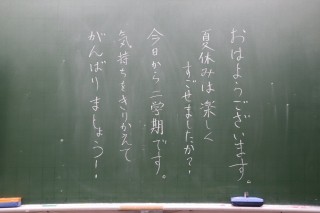 おはようございます。
夏休みは楽しく
すごせましたか？
今日から二学期です。
気持ちをきりかえて
がんばりましょう！